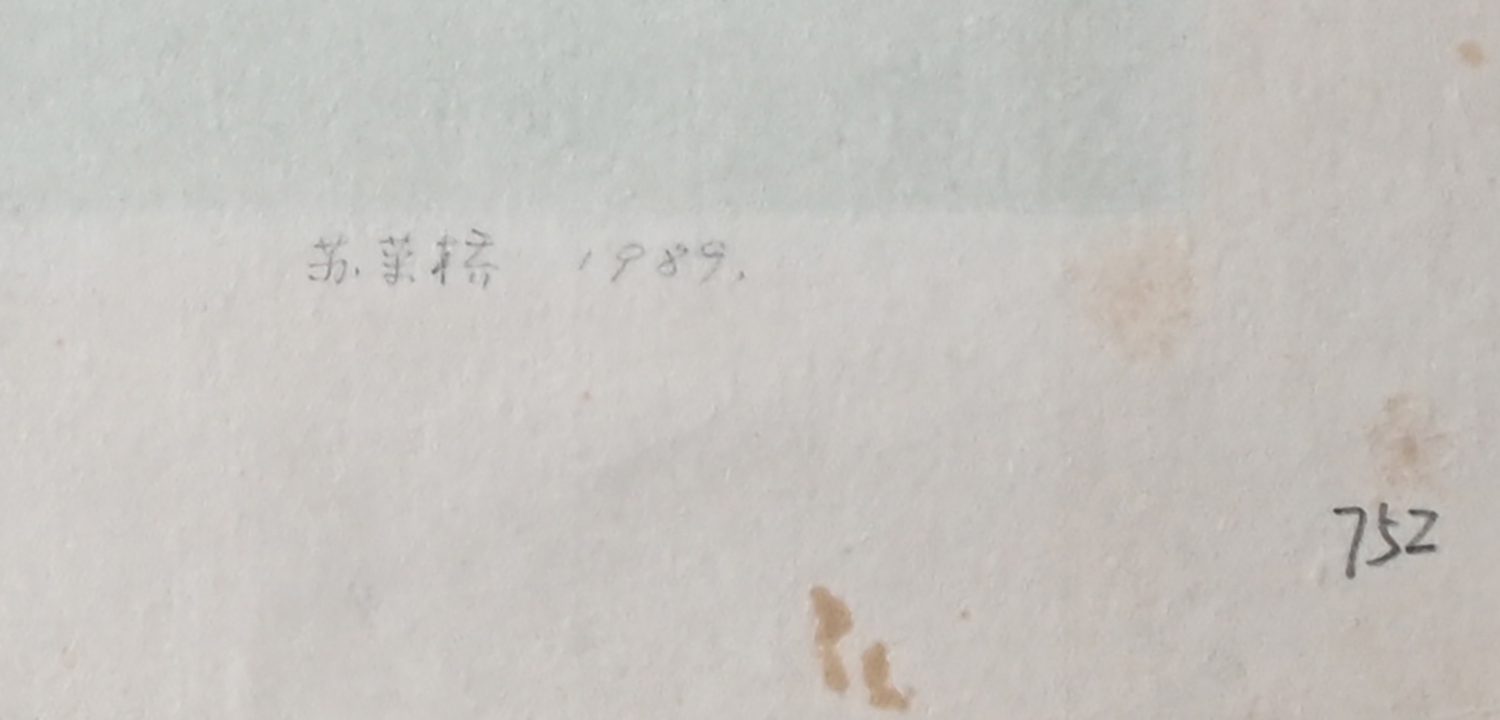 苏.菜桥 1989.
752